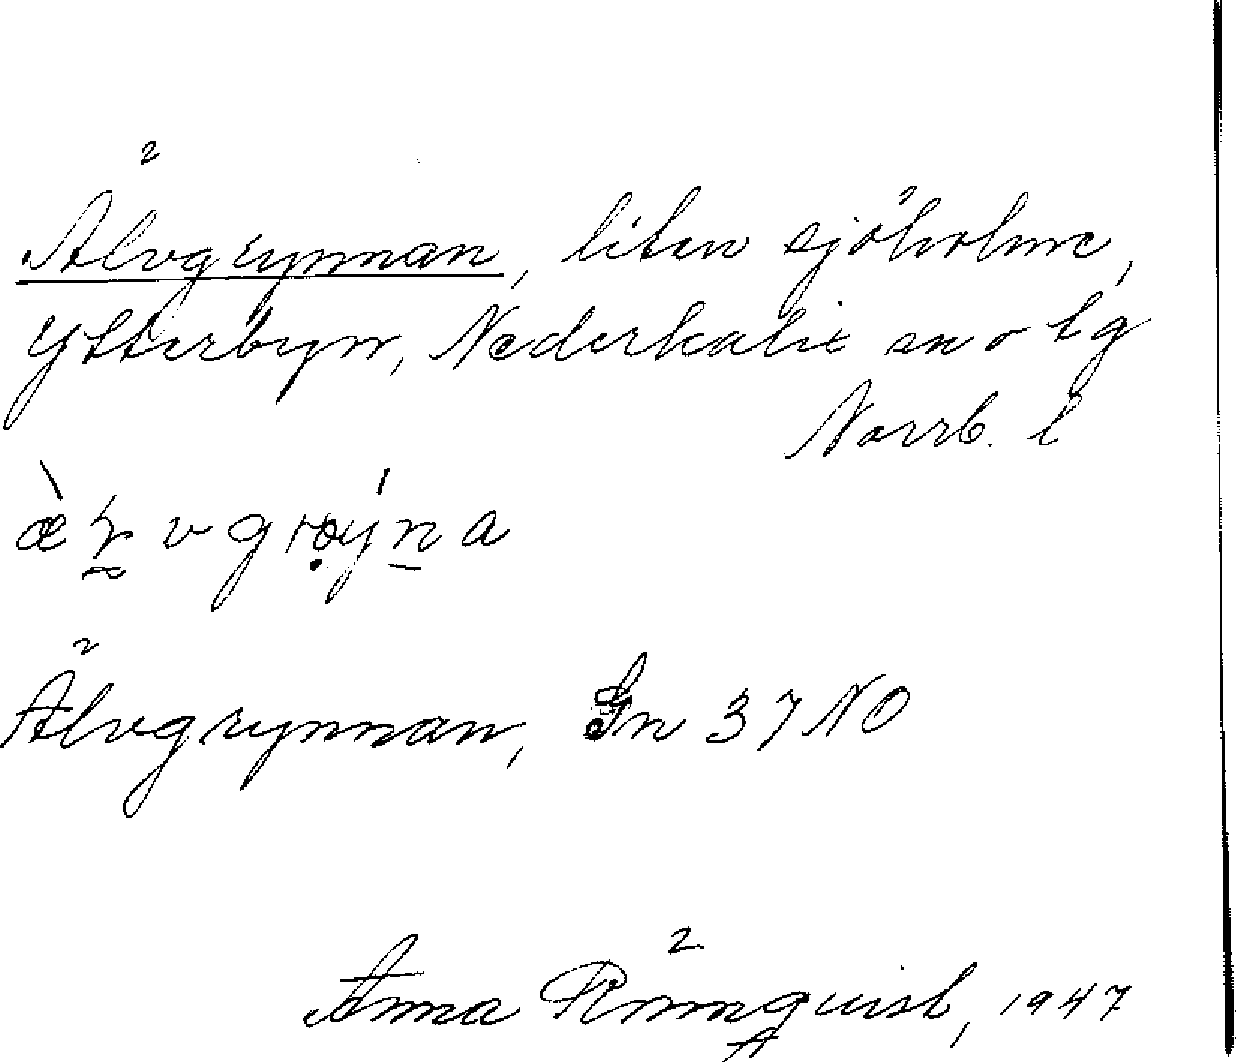 Älvgrynnan, liten sjöholme,
Ytterbyn, Nederkalix sn o tg
Norrb. l
Älvgrynnan, Gn 37 NO
Anna Rönnqvist, 1947